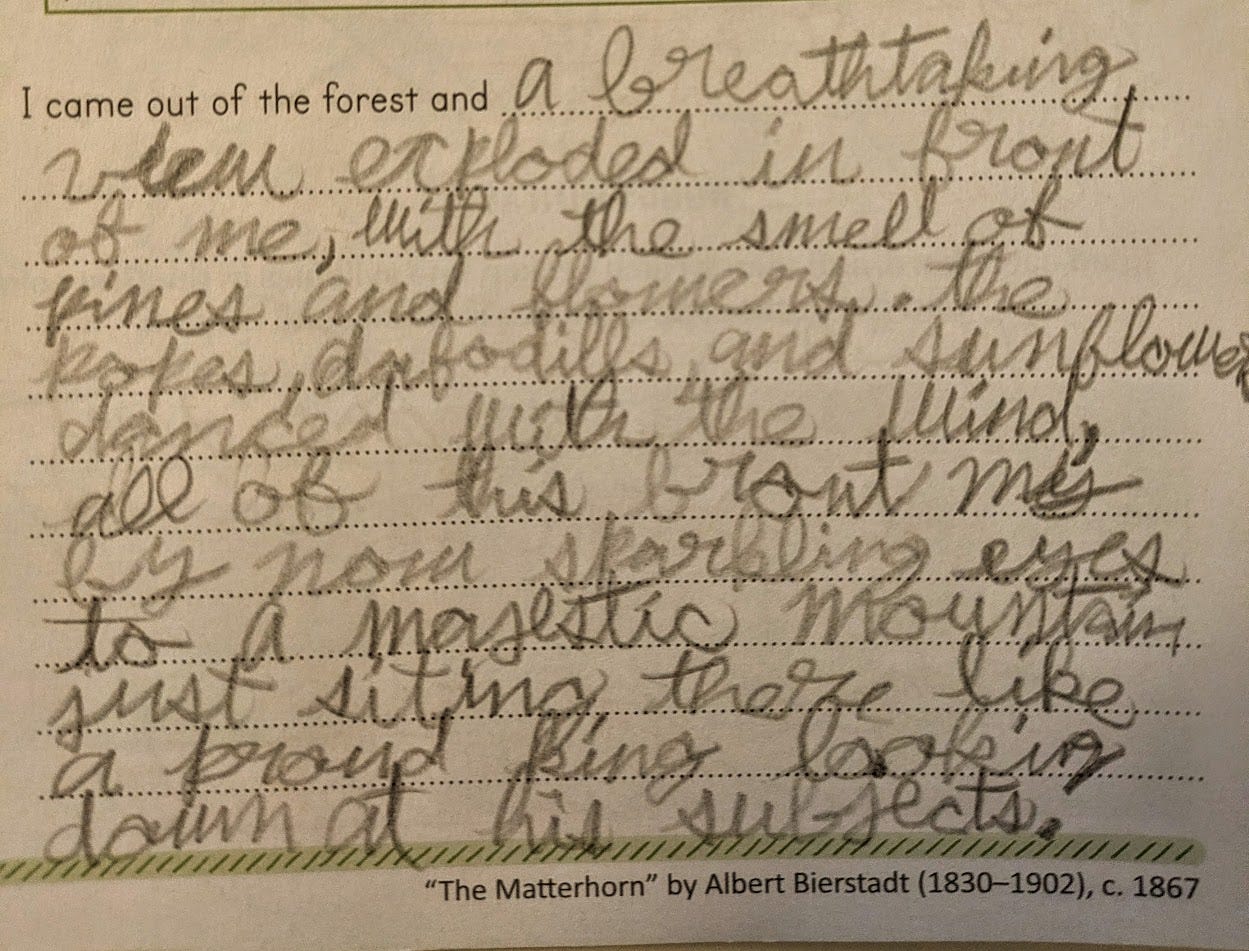 I came out of the forest and a breathtaking
view exploded in front
of me, with the smell of
pines and flowers. the
popes, dafodills and sunflowers
danced with the wind,
all of this bront my
by now sparkling eyes
to a majestic mountain
just siting there like
a proud king looking
down at his subjects.
“The Matterhorn” by Albert Bierstadt (1830–1902), c. 1867